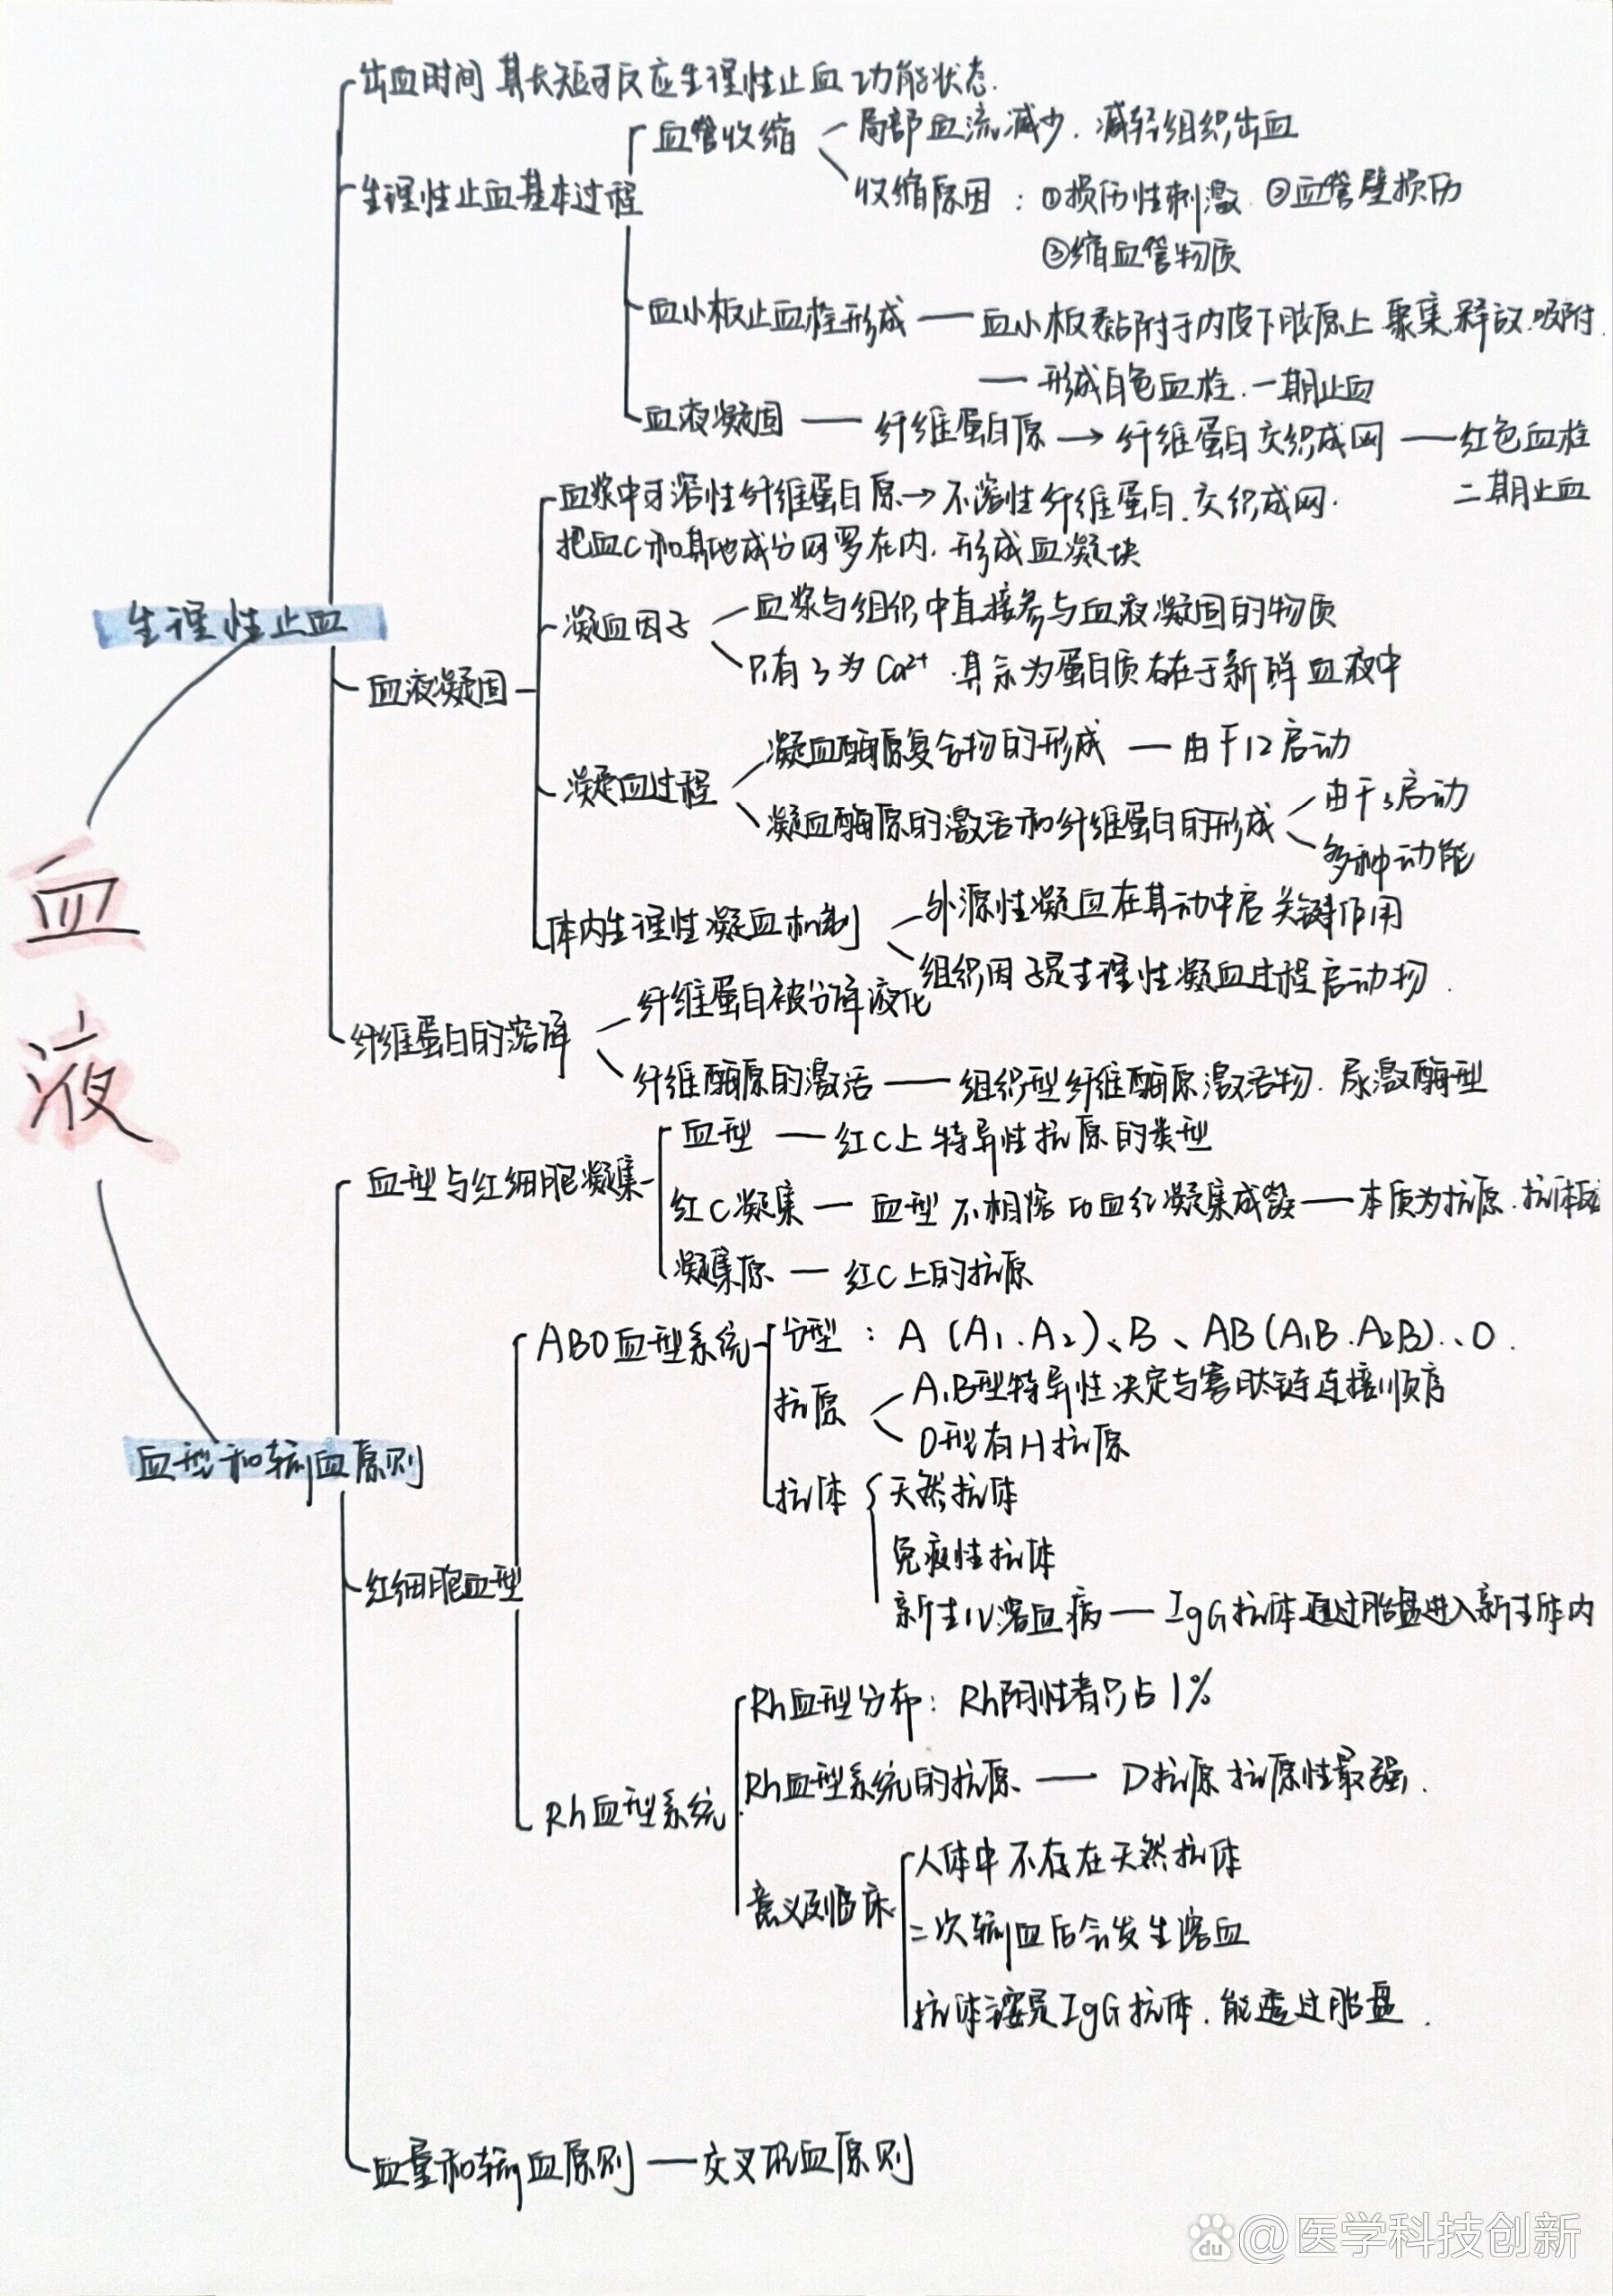 出血时间 其长短可反应生理性止血功能状态.
血管收缩
局部血流减少. 减轻组织出血
生理性止血基本过程
收缩原因:①损伤性刺激 ②血管壁损伤
③缩血管物质
血小板止血栓形成 — 血小板黏附于内皮下胶原上 聚集.释放.吸附.
— 形成白色血栓.一期止血
血液凝固 — 纤维蛋白原→纤维蛋白交织成网 — 红色血栓
二期止血
血浆中可溶性纤维蛋白原→不溶性纤维蛋白.交织成网.
把血C和其他成分网罗在内.形成血凝块
生理性止血
凝血因子
血浆与组织中直接参与血液凝固的物质
只有3为Ca²⁺.其余为蛋白质存在于新鲜血液中
血液凝固
凝血过程
凝血酶原复合物的形成 — 由于12启动
凝血酶原的激活和纤维蛋白的形成
由于3启动
多种动能
血
液
体内生理性凝血机制
外源性凝血在其动中启关键作用
组织因子是生理性凝血过程启动物.
纤维蛋白的溶解
纤维蛋白被分解液化
纤维酶原的激活 — 组织型纤维酶原激活物. 尿激酶型
血型与红细胞凝集
血型 — 红C上特异性抗原的类型
红C凝集 — 血型不相容的血红凝集成簇 — 本质为抗原.抗体
凝集原 — 红C上的抗原
ABO血型系统
分型: A(A₁.A₂)、B、AB(A₁B.A₂B)、O.
抗原
A.B型特异性决定与寡肽链连接顺序
O型有H抗原
血型和输血原则
抗体
天然抗体
免疫性抗体
新生儿溶血病 — IgG抗体通过胎盘进入新生体内
红细胞血型
Rh血型分布: Rh阴性者只占1%
Rh血型系统的抗原 — D抗原抗原性最强.
Rh血型系统
意义及临床
人体中不存在天然抗体
二次输血后会发生溶血
抗体主要是IgG抗体.能透过胎盘.
血量和输血原则 — 交叉配血原则
du @医学科技创新